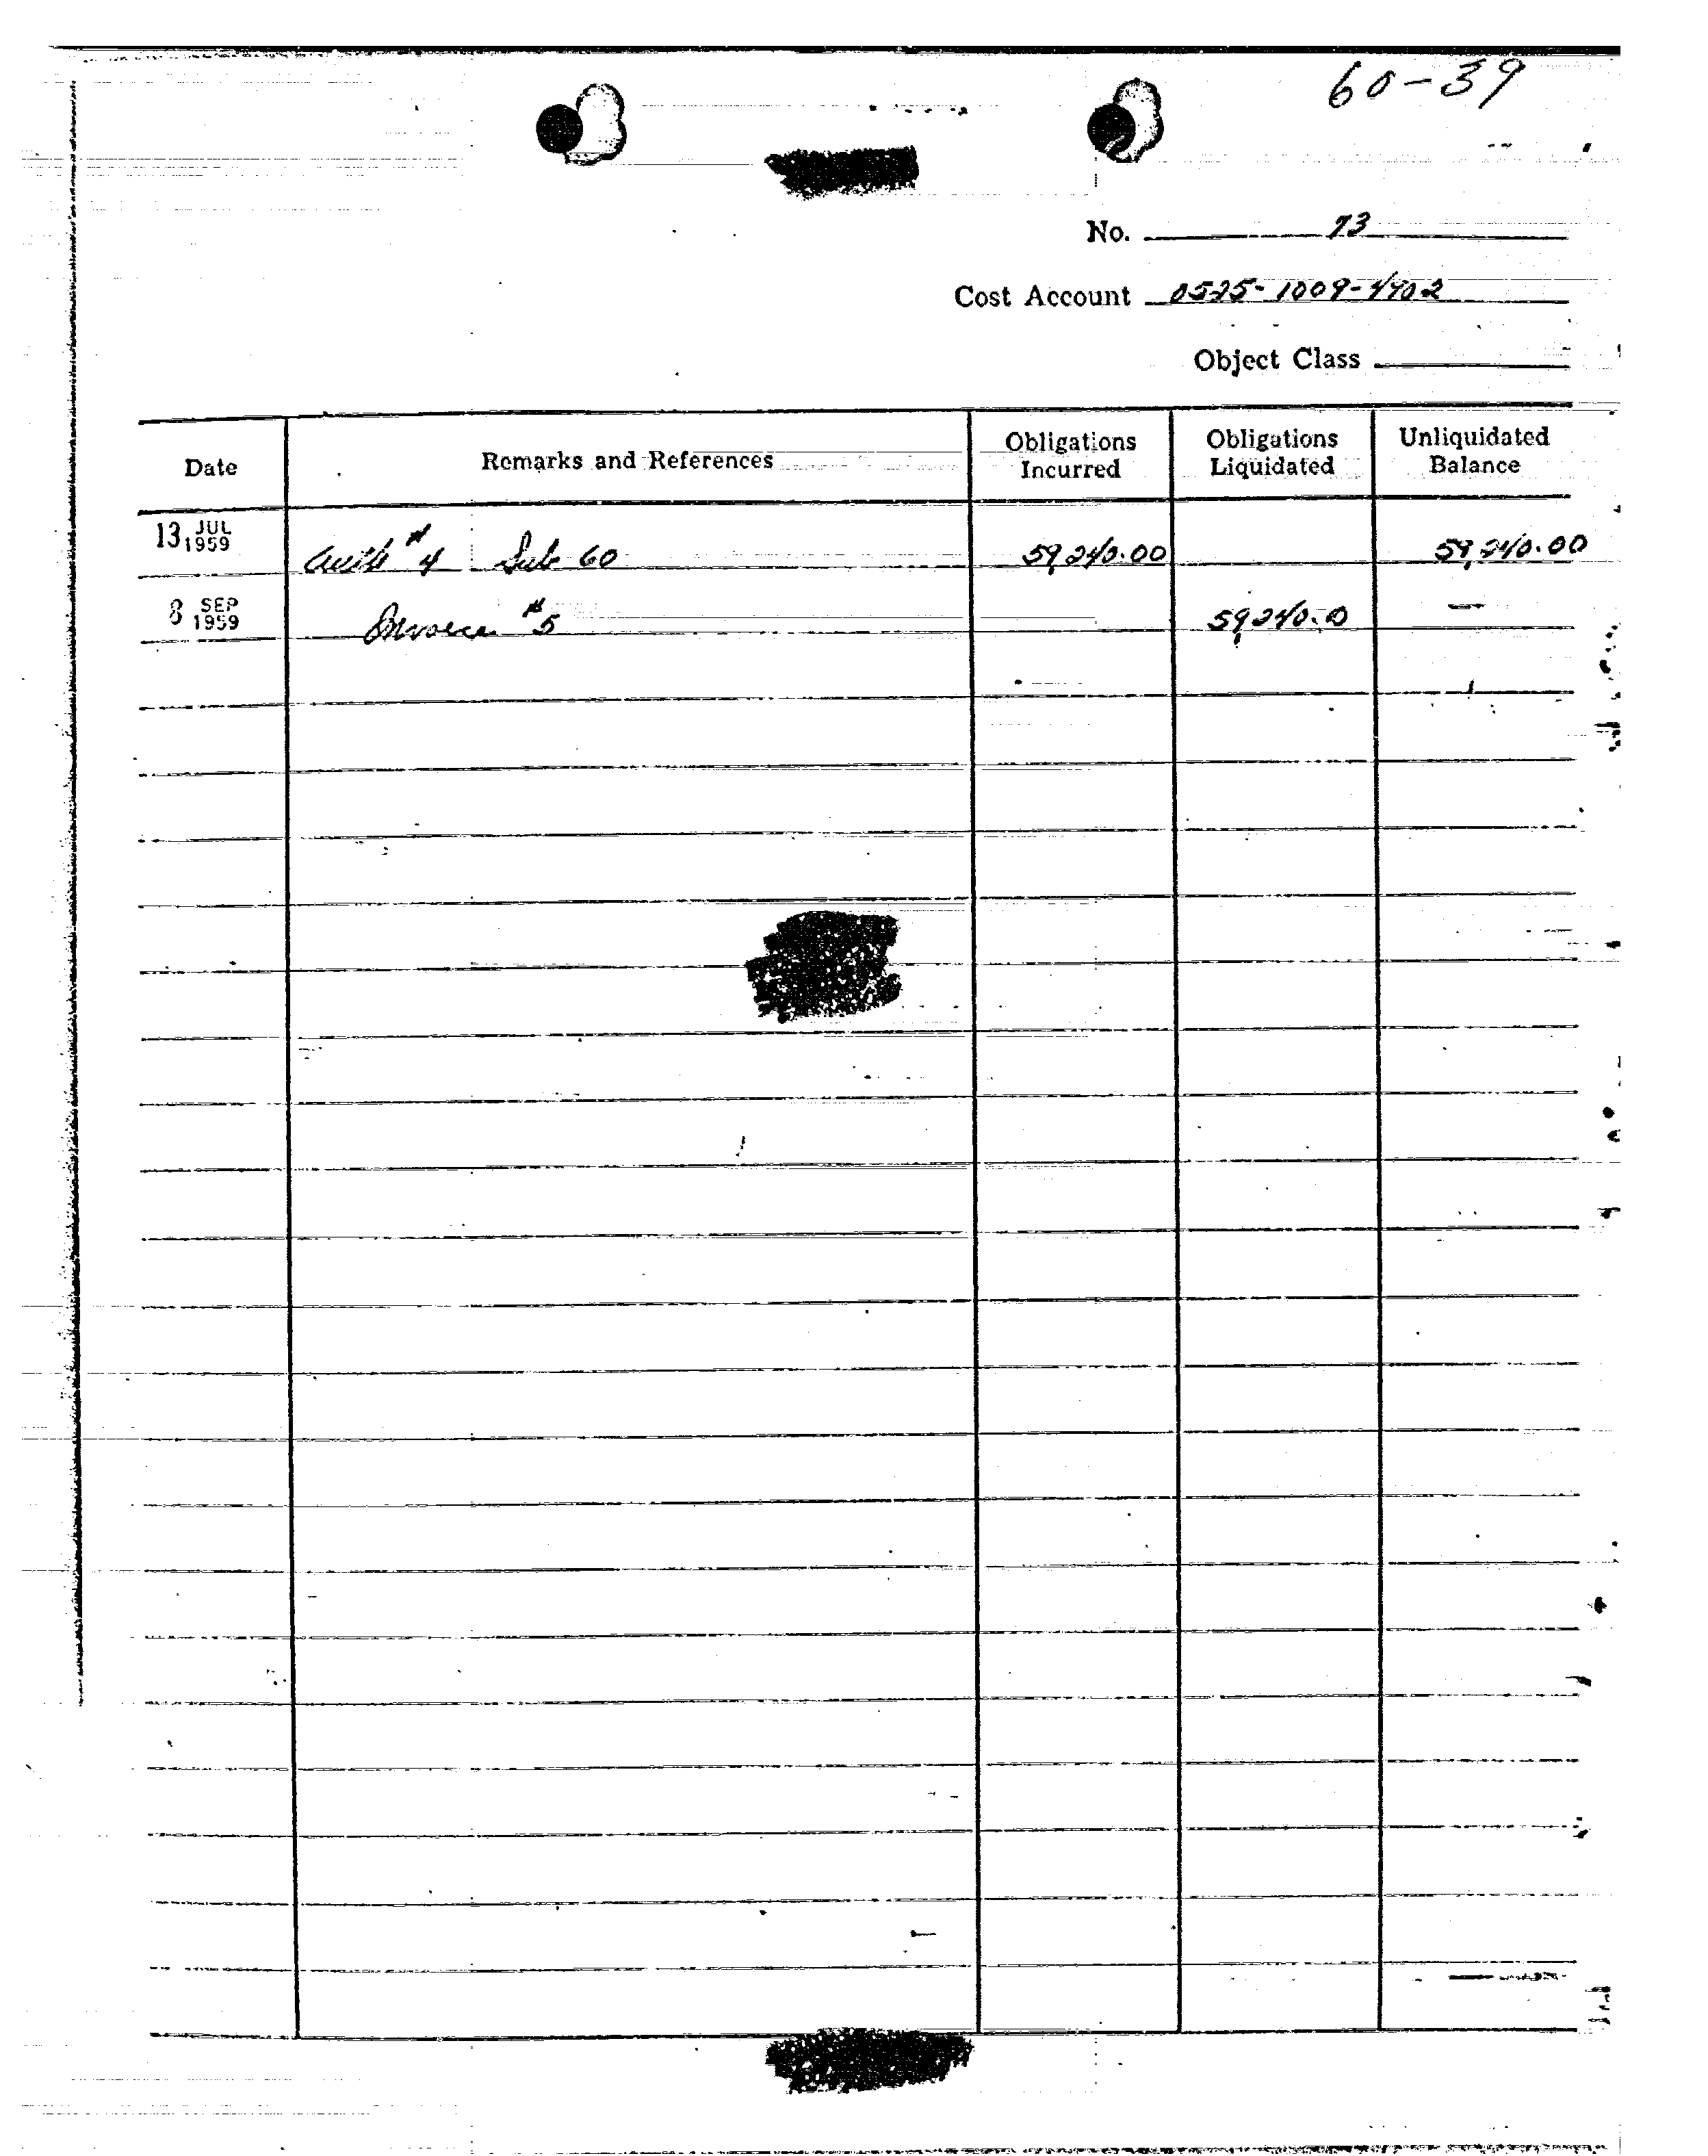 60-39
No. 73
Cost Account 0525-1009-4902
Object Class
Date Remarks and References Obligations Incurred Obligations Liquidated Unliquidated Balance
13 JUL 1959 Auth #4 Sub 60 59,240.00 59,240.00
8 SEP 1959 Invoice #5 59,240.00 —